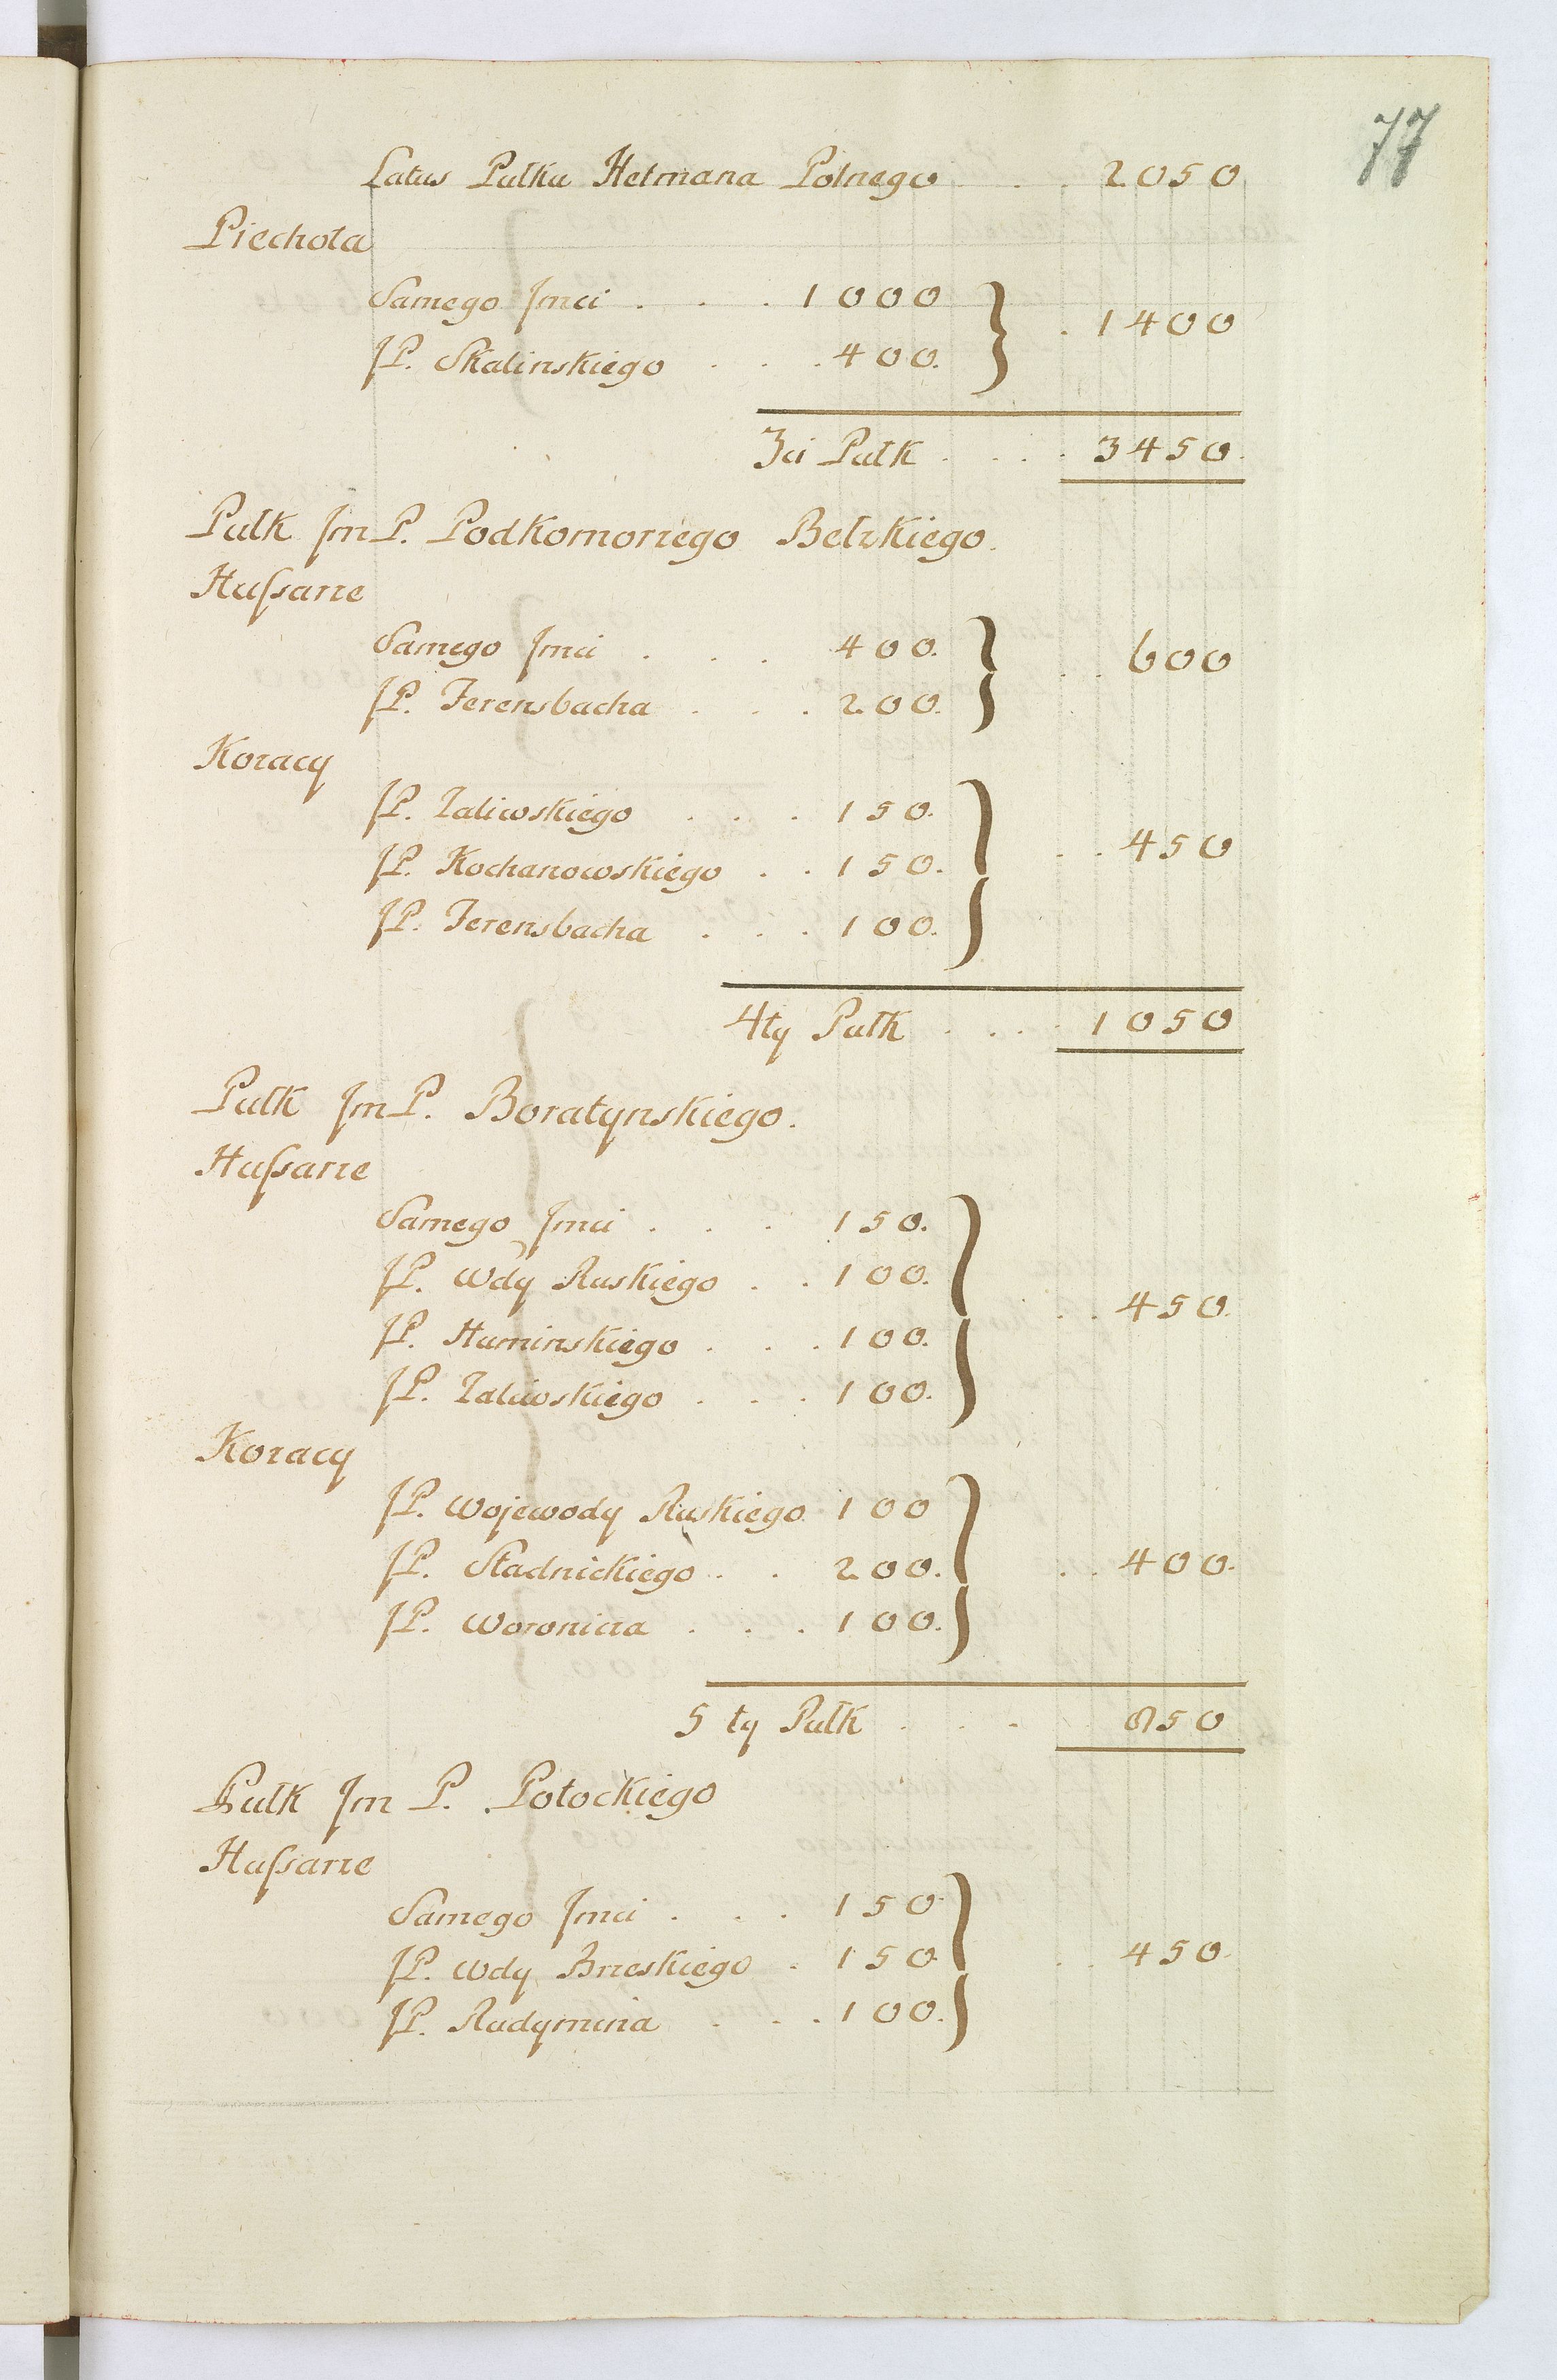 77
Latus Pułku Hetmana Polnego . . 2050
Piechota
Samego Jmci . . . 1000
1400
JP. Skalinskiego . . . 400.
3ci Pułk . . . . 3450.
Pułk Jm P. Podkomorzego Belzkiego.
Hussarze
Samego Jmci . . . 400.
. . 600
JP. Ferensbacha . . . 200.
Kozacy
JP. Zaliwskiego . . . 150.
JP. Kochanowskiego . . 150.
. . 450
JP. Ferensbacha . . . 100.
4ty Pułk . . . . 1050
Pułk Jm P. Boratynskiego.
Hussarze
Samego Jmci . . . 150.
JP. Wdy Ruskiego . . 100.
. . 450.
JP. Huminskiego . . . 100.
JP. Zaliwskiego . . . 100.
Kozacy
JP. Wojewody Ruskiego 100
JP. Stadnickiego . . 200.
. . 400.
JP. Woronicza . . . 100.
5ty Pułk . . . 850
Pułk Jm P. Potockiego
Hussarze
Samego Jmci . . . 150
JP. Wdy Brzeskiego . 150
. . 450.
JP. Rudymina . . . 100.